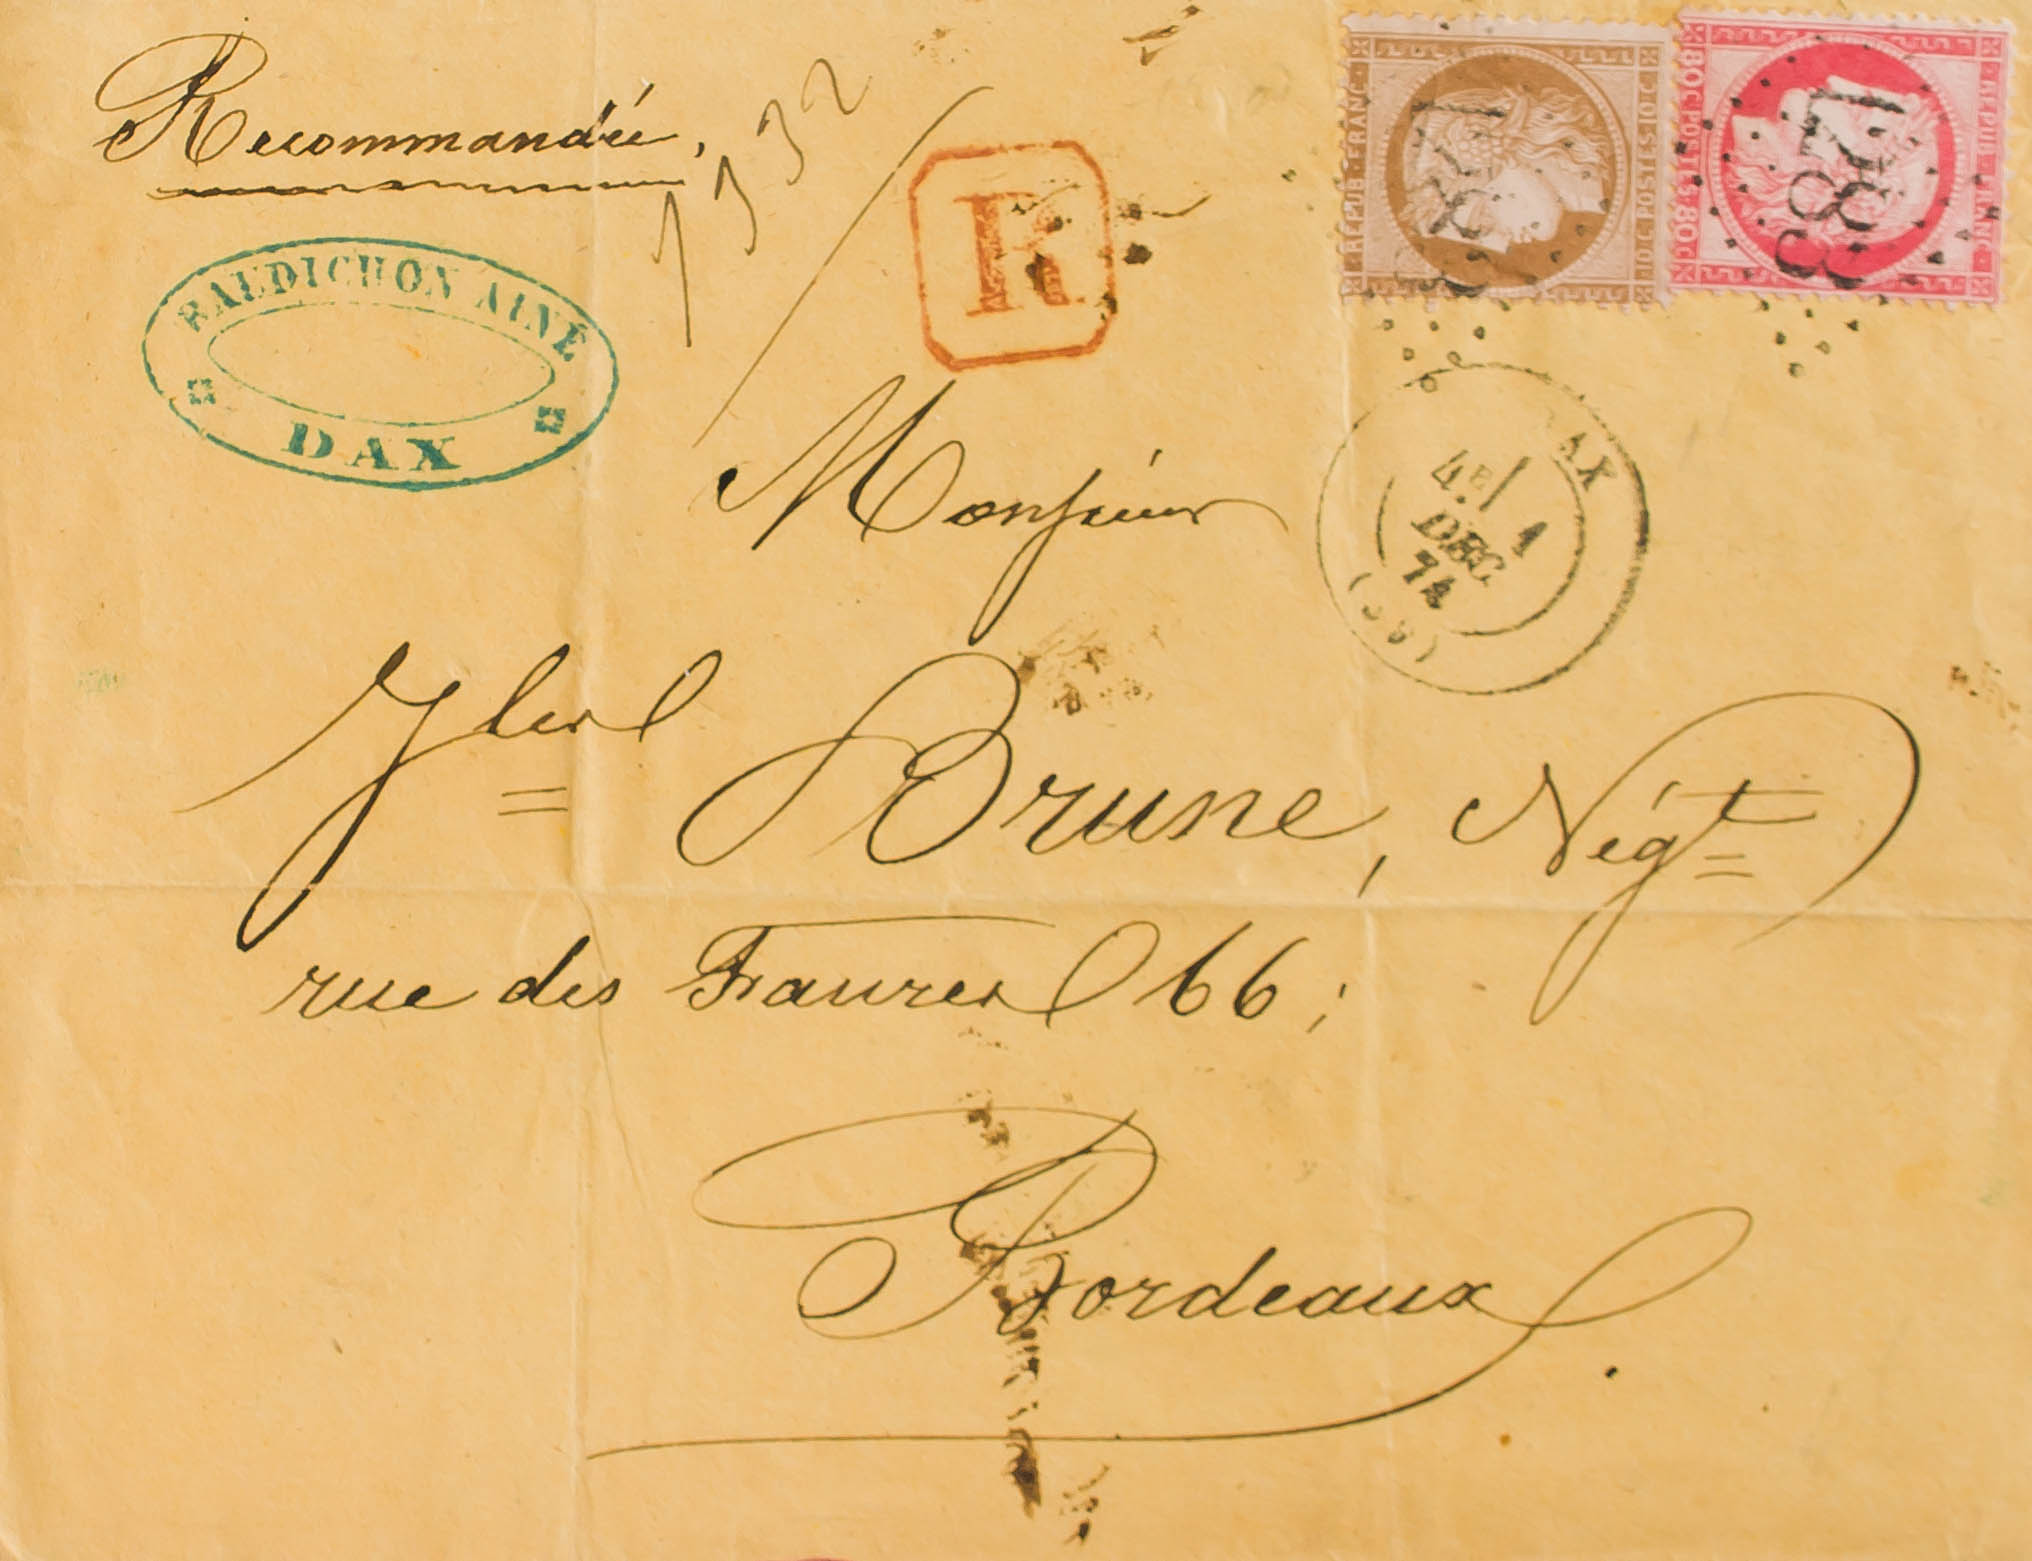 Recommandée,
1132
R
BAUDICHON AINÉ
DAX
REPUB·FRANC·
10·C·POSTES·10·C
80·C·POSTES·80·C
REPUB·FRANC·
1283
DAX
4E/ 1
DEC
74
Monsieur
Brune, Négt
rue des Faures 66;
Bordeaux